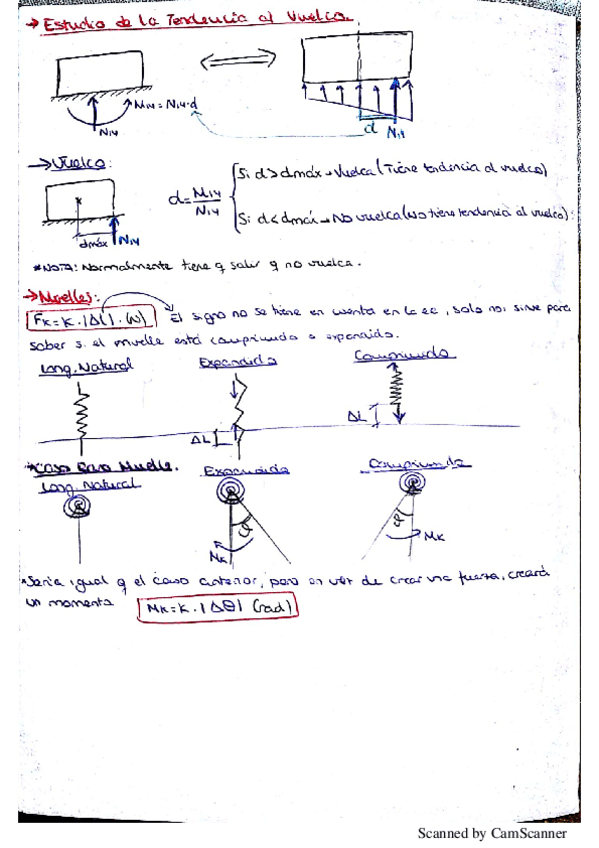 → Estudio de la Tendencia al Vuelco.
M14 = N14·d
N14
d
N14
→ Vuelco:
d = M14/N14
Si d > dmáx → Vuelca (Tiene tendencia al vuelco)
Si d < dmáx → No vuelca (No tiene tendencia al vuelco).
dmáx
N14
*NOTA: Normalmente tiene q salir q no vuelca.
→ Muelles:
FK = K·|ΔL|·(N)
El signo no se tiene en cuenta en la ec, solo nos sirve para
saber si el muelle está comprimido o expandido.
Long. Natural
Expandido
Comprimido
ΔL
ΔL
*Caso Raro Muelle.
Long. Natural
Expandido
Comprimido
φ
MK
φ
MK
*Sería igual q el caso anterior, pero en vez de crear una fuerza, creará
un momento
MK = K·|Δθ| (rad)
Scanned by CamScanner